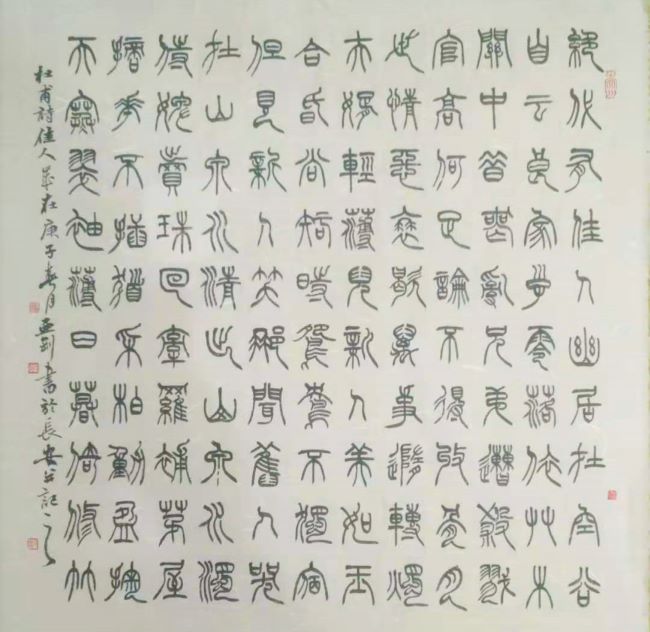 絕代有佳人幽居在空谷
自云良家子零落依艸木
關中昔喪亂兄弟遭殺戮
官高何足論不得收骨肉
世情惡衰歇萬事隨轉燭
夫婿輕薄兒新人美如玉
合昏尚知時鴛鴦不獨宿
但見新人笑那聞舊人哭
在山泉水清出山泉水濁
侍婢賣珠回牽蘿補茅屋
摘華不插髮采柏動盈掬
天寒翠袖薄日暮倚修竹
杜甫詩佳人歲在庚子春月書於長安並記之